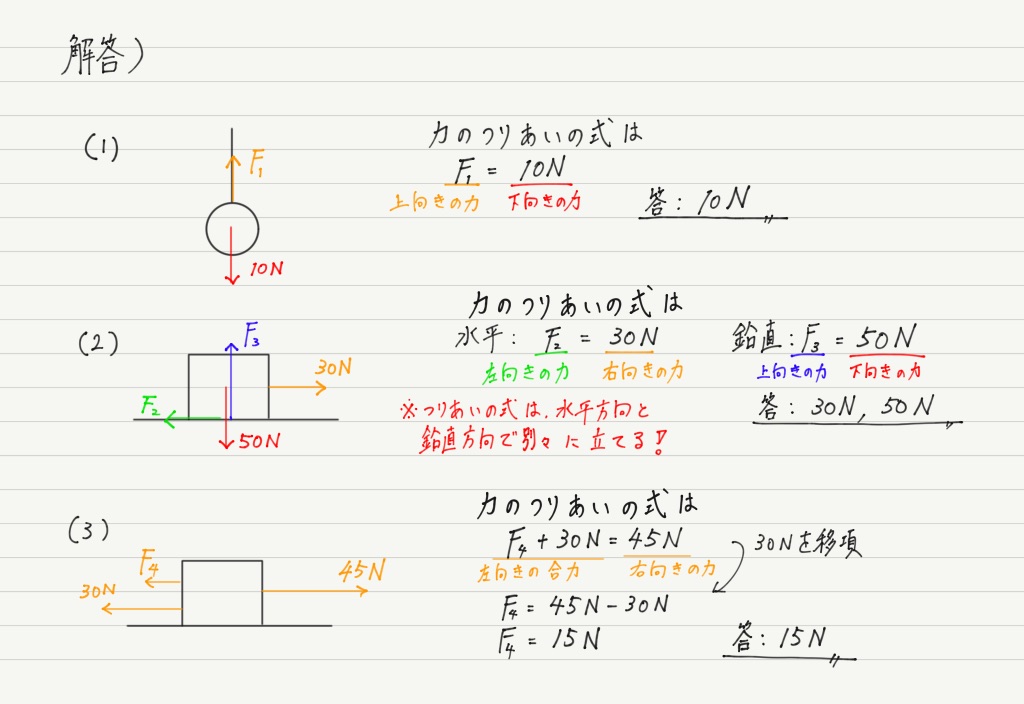 解答)
(1)
F₁
10N
力のつりあいの式は
F₁ = 10N
上向きの力 下向きの力
答: 10N
(2)
F₃
30N
F₂
50N
力のつりあいの式は
水平: F₂ = 30N 鉛直: F₃ = 50N
左向きの力 右向きの力 上向きの力 下向きの力
※つりあいの式は、水平方向と
鉛直方向で別々に立てる!
答: 30N, 50N
(3)
F₄
30N
45N
力のつりあいの式は
F₄ + 30N = 45N
左向きの合力 右向きの力
30Nを移項
F₄ = 45N - 30N
F₄ = 15N
答: 15N